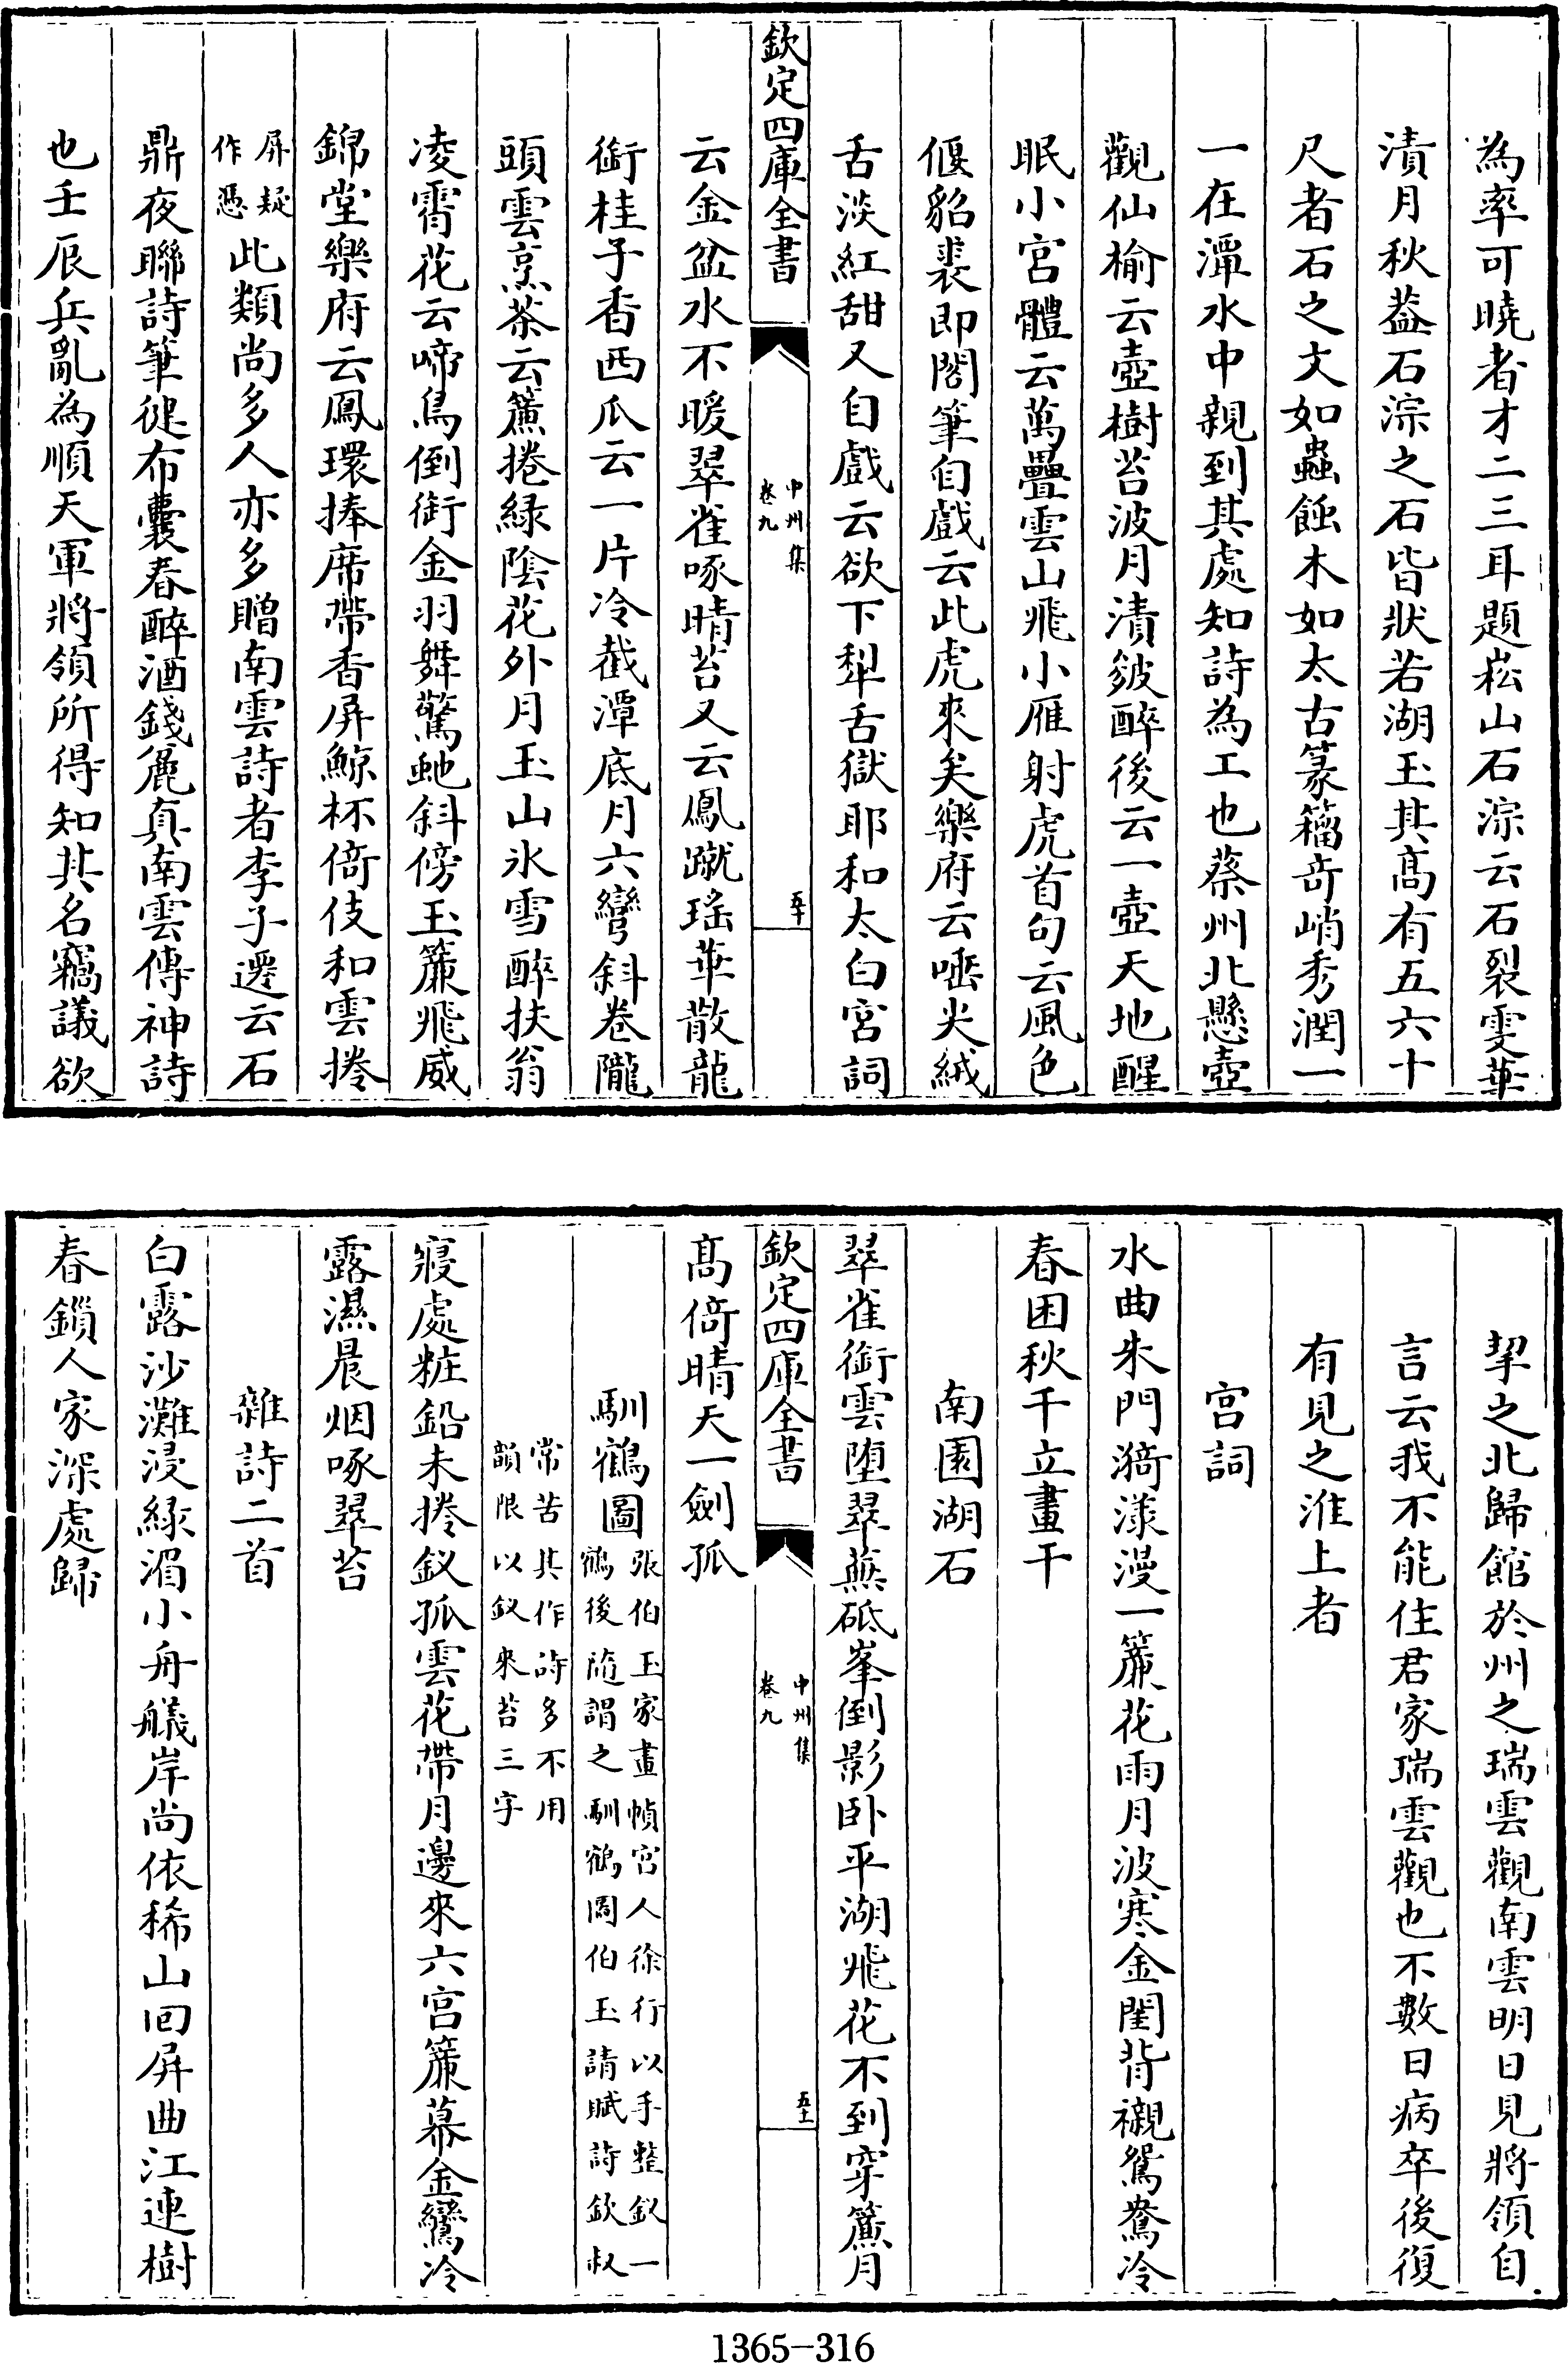 為率可曉者才二三耳題崧山石淙云石裂雯華
漬月秋葢石淙之石皆狀若湖玉其髙有五六十
尺者石之文如蟲蝕木如太古篆籀奇峭秀潤一
一在潭水中親到其處知詩為工也蔡州北懸壺
觀仙榆云壺樹苔波月漬皴醉後云一壺天地醒
眠小宮體云萬疊雲山飛小雁射虎首句云風色
偃貂裘即閣筆自戲云此虎來矣樂府云唾尖絨
舌淡紅甜又自戲云欲下犁舌獄耶和太白宮詞
欽定四庫全書
中州集
卷九
五十
云金盆水不暖翠雀啄晴苔又云鳳蹴瑤華散龍
銜桂子香西瓜云一片冷截潭底月六彎斜卷隴
頭雲烹茶云簾捲緑陰花外月玉山氷雪醉扶翁
凌霄花云啼鳥倒銜金羽舞驚虵斜傍玉簾飛威
錦堂樂府云鳳環捧席帶香屏鯨杯倚伎和雲捲
屏疑
作憑
此類尚多人亦多贈南雲詩者李子遷云石
鼎夜聯詩筆徤布囊春醉酒錢麄真南雲傳神詩
也壬辰兵亂為順天軍將領所得知其名竊議欲
挈之北歸館於州之瑞雲觀南雲明日見將領自
言云我不能住君家瑞雲觀也不數日病卒後復
有見之淮上者
宮詞
水曲朱門漪漾漫一簾花雨月波寒金閨背襯鴛鴦冷
春困秋千立畫干
南園湖石
翠雀銜雲墮翠蕪砥峯倒影卧平湖飛花不到穿簾月
欽定四庫全書
中州集
卷九
五十一
髙倚晴天一劍孤
馴鶴圖
張伯玉家畫幀宮人徐行以手整釵一
鶴後隨謂之馴鶴圖伯玉請賦詩欽叔
常苦其作詩多不用
韻限以釵來苔三字
寢處粧鉛未捲釵孤雲花帶月邊來六宮簾幕金鸞冷
露濕晨烟啄翠苔
雜詩二首
白露沙灘浸緑湄小舟艤岸尚依稀山回屏曲江連樹
春鎻人家深處歸
1365-316